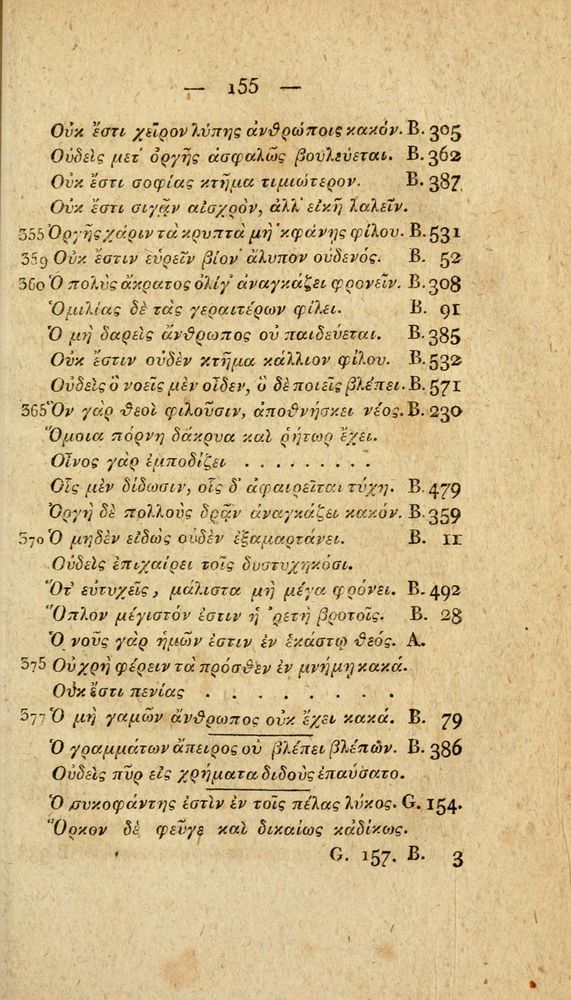 — 155 —
Οὐκ ἔστι χεῖρον λύπης ἀνθρώποις κακόν. B. 305
Οὐδεὶς μετ' ὀργῆς ἀσφαλῶς βουλεύεται. B. 362
Οὐκ ἔστι σοφίας κτῆμα τιμιώτερον. B. 387
Οὐκ ἔστι σιγᾷν αἰσχρὸν, ἀλλ' εἰκῆ λαλεῖν.
355 Ὀργῆς χάριν τὰ κρυπτὰ μὴ 'κφάνῃς φίλου. B. 531
359 Οὐκ ἔστιν εὑρεῖν βίον ἄλυπον οὐδενός. B. 52
360 Ὁ πολὺς ἄκρατος ὀλίγ' ἀναγκάζει φρονεῖν. B. 308
Ὁμιλίας δὲ τὰς γεραιτέρων φίλει. B. 91
Ὁ μὴ δαρεὶς ἄνθρωπος οὐ παιδεύεται. B. 385
Οὐκ ἔστιν οὐδὲν κτῆμα κάλλιον φίλου. B. 532
Οὐδεὶς ὃ νοεῖς μὲν οἶδεν, ὃ δὲ ποιεῖς βλέπει. B. 571
365 Ὃν γὰρ θεοὶ φιλοῦσιν, ἀποθνήσκει νέος. B. 230
Ὅμοια πόρνη δάκρυα καὶ ῥήτωρ ἔχει.
Οἶνος γὰρ ἐμποδίζει . . . . . . . . .
Οἷς μὲν δίδωσιν, οἷς δ' ἀφαιρεῖται τύχη. B. 479
Ὀργὴ δὲ πολλοὺς δρᾷν ἀναγκάζει κακόν. B. 359
370 Ὁ μηδὲν εἰδὼς οὐδὲν ἐξαμαρτάνει. B. 11
Οὐδεὶς ἐπιχαίρει τοῖς δυστυχηκόσι.
Ὅτ' εὐτυχεῖς, μάλιστα μὴ μέγα φρόνει. B. 492
Ὅπλον μέγιστόν ἐστιν ἡ 'ρετὴ βροτοῖς. B. 28
Ὁ νοῦς γὰρ ἡμῶν ἐστιν ἐν ἑκάστῳ θεός. A.
375 Οὐ χρὴ φέρειν τὰ πρόσθεν ἐν μνήμῃ κακά.
Οὐκ ἔστι πενίας . . . . . . . .
377 Ὁ μὴ γαμῶν ἄνθρωπος οὐκ ἔχει κακά. B. 79
Ὁ γραμμάτων ἄπειρος οὐ βλέπει βλέπων. B. 386
Οὐδεὶς πῦρ εἰς χρήματα διδοὺς ἐπαύσατο.
Ὁ συκοφάντης ἐστὶν ἐν τοῖς πέλας λύκος. G. 154.
Ὅρκον δὲ φεῦγε καὶ δικαίως κἀδίκως.
G. 157. B. 3